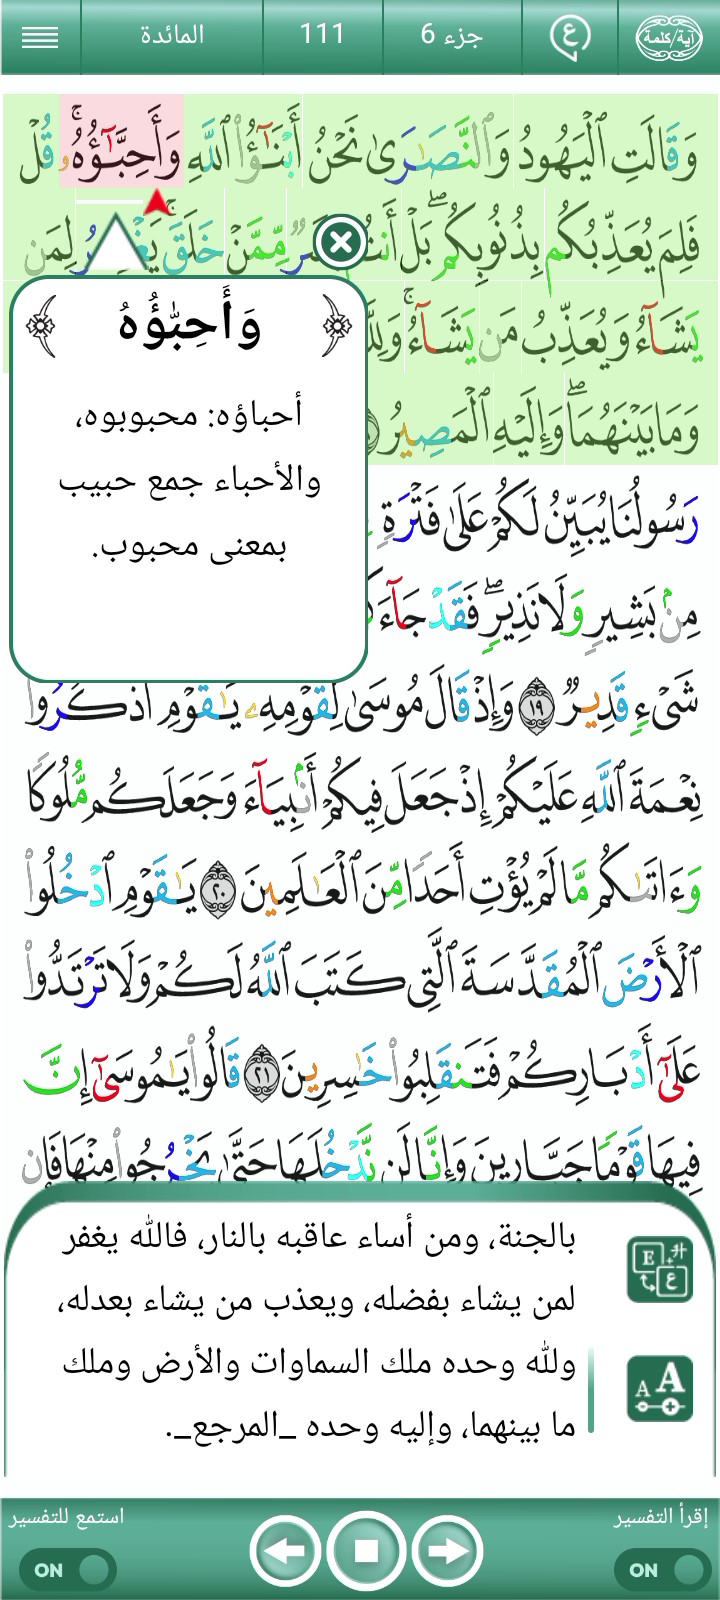 آية/كلمة
ع
جزء 6
111
المائدة
وَقَالَتِ الْيَهُودُ وَالنَّصَارَىٰ نَحْنُ أَبْنَاءُ اللَّهِ وَأَحِبَّاؤُهُ ۚ قُلْ
فَلِمَ يُعَذِّبُكُم بِذُنُوبِكُم ۖ بَلْ أَنتُم خَلَقَ ۚ يَغْفِرُ لِمَن
يَشَاءُ وَيُعَذِّبُ مَن يَشَاءُ ۚ وَلِلَّهِ
وَمَا بَيْنَهُمَا ۖ وَإِلَيْهِ الْمَصِيرُ
وَأَحِبَّٰؤُهُ
أحباؤه: محبوبوه،
والأحباء جمع حبيب
بمعنى محبوب.
رَسُولُنَا يُبَيِّنُ لَكُمْ عَلَىٰ فَتْرَةٍ
مِنۢ بَشِيرٍ وَلَا نَذِيرٍ ۖ فَقَدْ جَاءَكُم
شَىْءٍ قَدِيرٌ ١٩ وَإِذْ قَالَ مُوسَىٰ لِقَوْمِهِۦ يَٰقَوْمِ اذْكُرُوا
نِعْمَةَ اللَّهِ عَلَيْكُمْ إِذْ جَعَلَ فِيكُمْ أَنۢبِيَاءَ وَجَعَلَكُم مُّلُوكًا
وَءَاتَىٰكُم مَّا لَمْ يُؤْتِ أَحَدًا مِّنَ الْعَٰلَمِينَ ٢٠ يَٰقَوْمِ ادْخُلُوا
الْأَرْضَ الْمُقَدَّسَةَ الَّتِى كَتَبَ اللَّهُ لَكُمْ وَلَا تَرْتَدُّوا
عَلَىٰٓ أَدْبَارِكُمْ فَتَنقَلِبُوا خَٰسِرِينَ ٢١ قَالُوا يَٰمُوسَىٰٓ إِنَّ
فِيهَا قَوْمًا جَبَّارِينَ وَإِنَّا لَن نَّدْخُلَهَا حَتَّىٰ يَخْرُجُوا مِنْهَا فَإِن
بالجنة، ومن أساء عاقبه بالنار، فالله يغفر
لمن يشاء بفضله، ويعذب من يشاء بعدله،
ولله وحده ملك السماوات والأرض وملك
ما بينهما، وإليه وحده _المرجع_.
E
ع
A A
إقرأ التفسير
استمع للتفسير
ON
ON